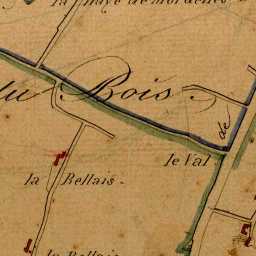 la haye de mordelles
du Bois.
de
le Val
la Rellais.
la Rellais